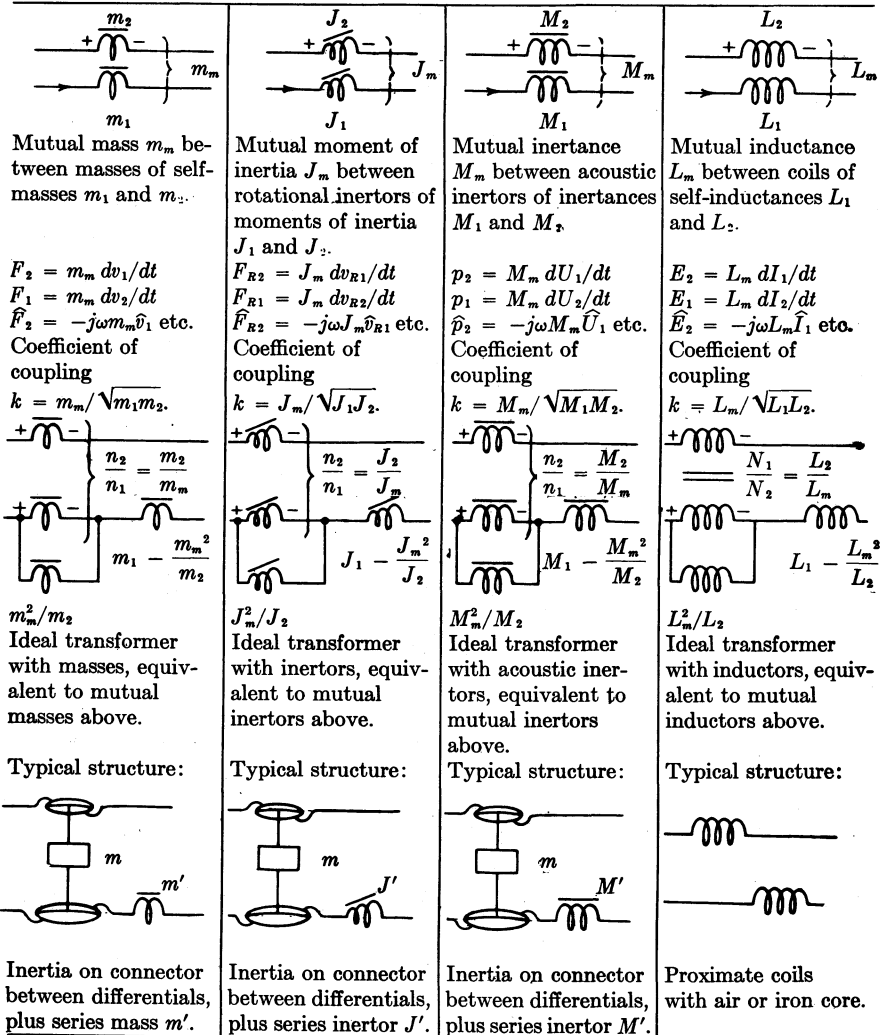 m₂
+ − mₘ
m₁
Mutual mass mₘ be-
tween masses of self-
masses m₁ and m₂.
F₂ = mₘ dv₁/dt
F₁ = mₘ dv₂/dt
F̂₂ = −jωmₘv̂₁ etc.
Coefficient of
coupling
k = mₘ/√m₁m₂.
+ −
n₂/n₁ = m₂/mₘ
+ −
m₁ − mₘ²/m₂
mₘ²/m₂
Ideal transformer
with masses, equiv-
alent to mutual
masses above.
Typical structure:
m
m′
Inertia on connector
between differentials,
plus series mass m′.
J₂
+ − Jₘ
J₁
Mutual moment of
inertia Jₘ between
rotational inertors of
moments of inertia
J₁ and J₂.
F_R2 = Jₘ dv_R1/dt
F_R1 = Jₘ dv_R2/dt
F̂_R2 = −jωJₘv̂_R1 etc.
Coefficient of
coupling
k = Jₘ/√J₁J₂.
+ −
n₂/n₁ = J₂/Jₘ
+ −
J₁ − Jₘ²/J₂
Jₘ²/J₂
Ideal transformer
with inertors, equiv-
alent to mutual
inertors above.
Typical structure:
m
J′
Inertia on connector
between differentials,
plus series inertor J′.
M₂
+ − Mₘ
M₁
Mutual inertance
Mₘ between acoustic
inertors of inertances
M₁ and M₂
p₂ = Mₘ dU₁/dt
p₁ = Mₘ dU₂/dt
p̂₂ = −jωMₘÛ₁ etc.
Coefficient of
coupling
k = Mₘ/√M₁M₂.
+ −
n₂/n₁ = M₂/Mₘ
+ −
M₁ − Mₘ²/M₂
Mₘ²/M₂
Ideal transformer
with acoustic iner-
tors, equivalent to
mutual inertors
above.
Typical structure:
m
M′
Inertia on connector
between differentials,
plus series inertor M′.
L₂
+ − Lₘ
L₁
Mutual inductance
Lₘ between coils of
self-inductances L₁
and L₂.
E₂ = Lₘ dI₁/dt
E₁ = Lₘ dI₂/dt
Ê₂ = −jωLₘÎ₁ etc.
Coefficient of
coupling
k = Lₘ/√L₁L₂.
+ −
N₁/N₂ = L₂/Lₘ
+ −
L₁ − Lₘ²/L₂
Lₘ²/L₂
Ideal transformer
with inductors, equiv-
alent to mutual
inductors above.
Typical structure:
Proximate coils
with air or iron core.